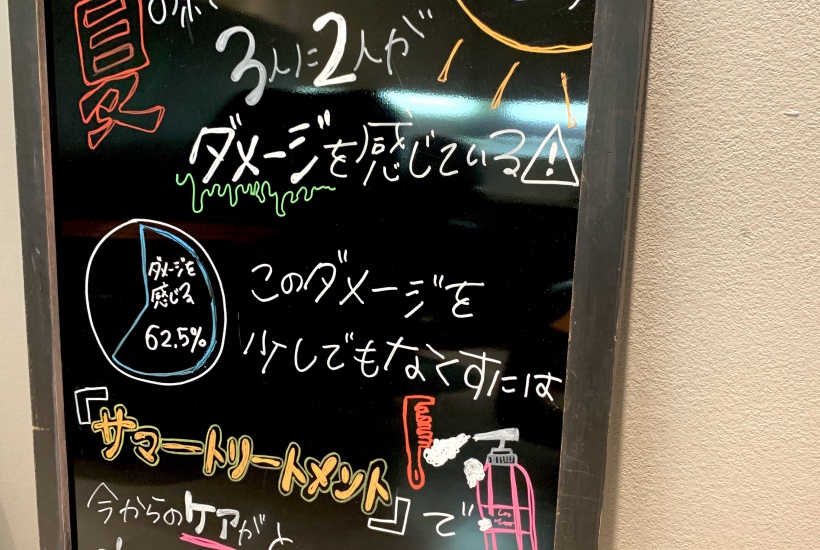 夏
3人に2人が
ダメージを感じている
ダメージを
感じる
62.5%
このダメージを
少しでもなくすには
『サマートリートメント』で
今からのケアがと